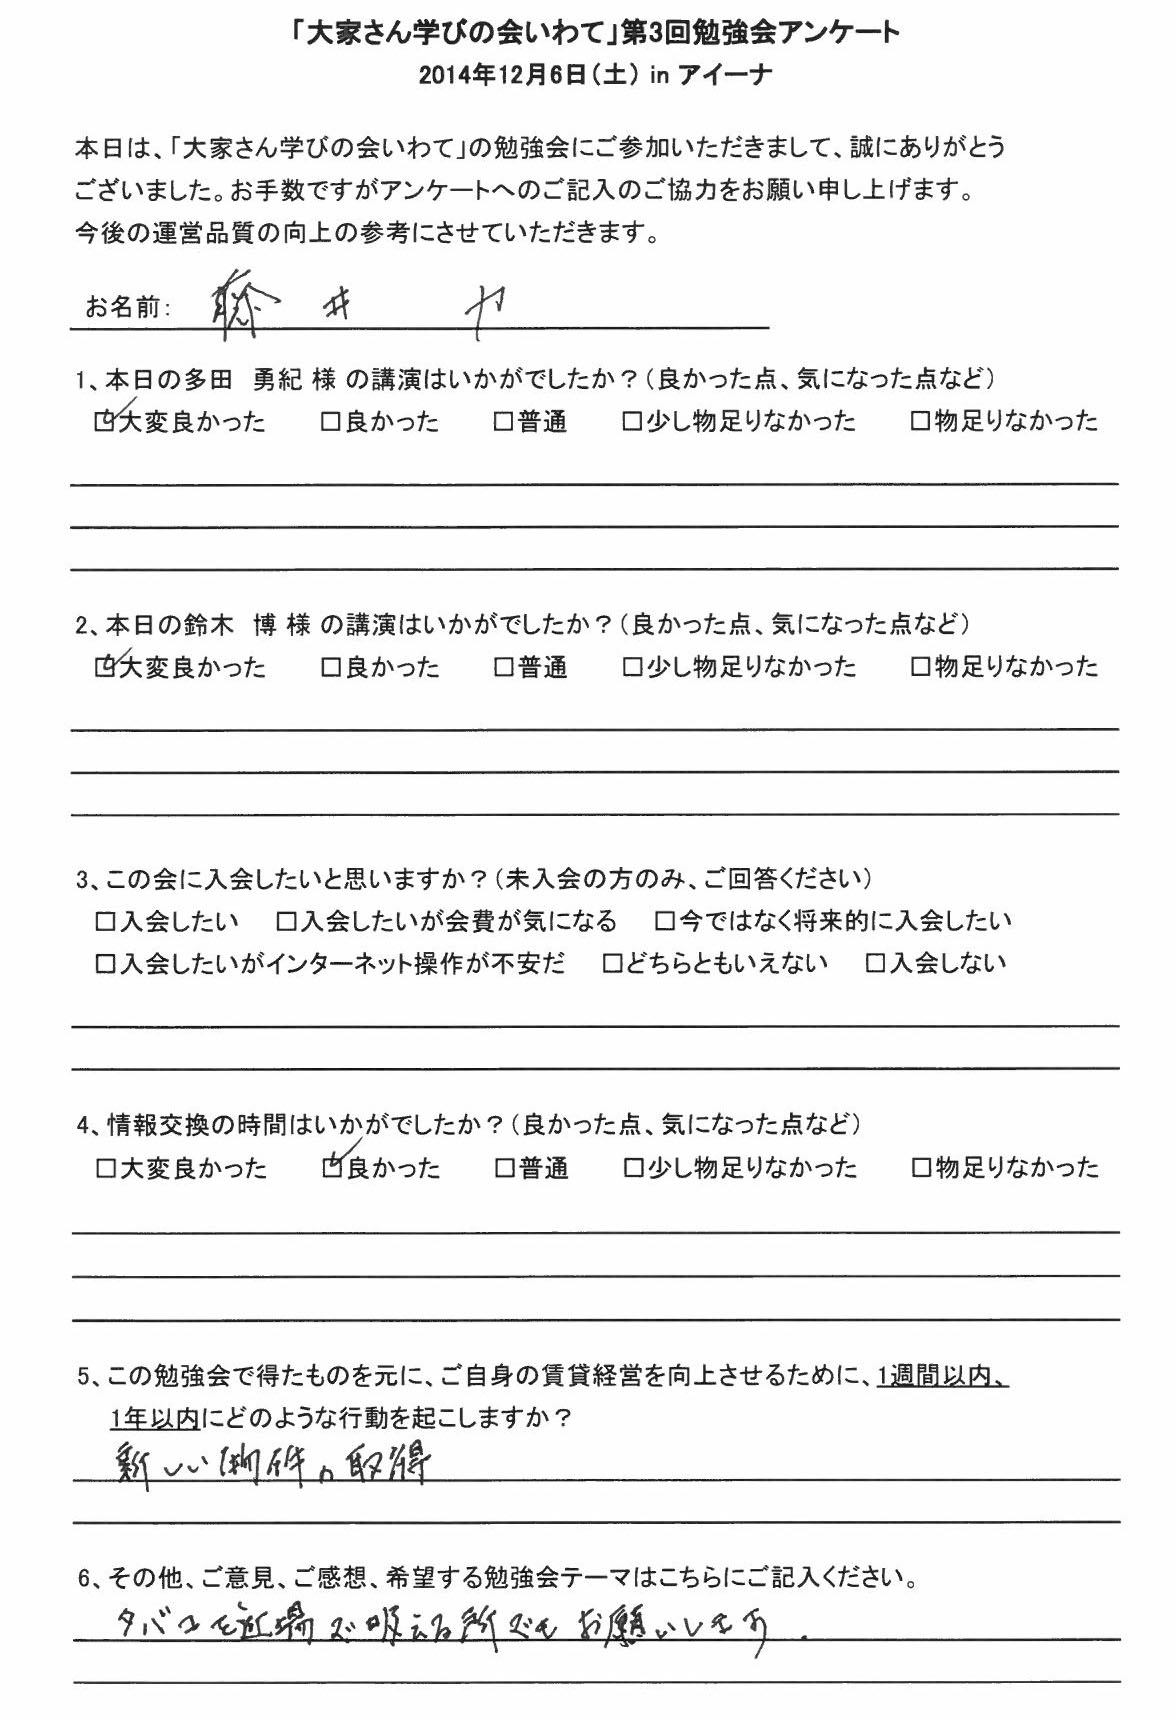 「大家さん学びの会いわて」第3回勉強会アンケート
2014年12月6日（土） in アイーナ
本日は、「大家さん学びの会いわて」の勉強会にご参加いただきまして、誠にありがとう
ございました。お手数ですがアンケートへのご記入のご協力をお願い申し上げます。
今後の運営品質の向上の参考にさせていただきます。
お名前： 藤井
1、本日の多田　勇紀 様 の講演はいかがでしたか？（良かった点、気になった点など）
☑大変良かった　□良かった　□普通　□少し物足りなかった　□物足りなかった
2、本日の鈴木　博 様 の講演はいかがでしたか？（良かった点、気になった点など）
☑大変良かった　□良かった　□普通　□少し物足りなかった　□物足りなかった
3、この会に入会したいと思いますか？（未入会の方のみ、ご回答ください）
□入会したい　□入会したいが会費が気になる　□今ではなく将来的に入会したい
□入会したいがインターネット操作が不安だ　□どちらともいえない　□入会しない
4、情報交換の時間はいかがでしたか？（良かった点、気になった点など）
□大変良かった　☑良かった　□普通　□少し物足りなかった　□物足りなかった
5、この勉強会で得たものを元に、ご自身の賃貸経営を向上させるために、1週間以内、
1年以内にどのような行動を起こしますか？
新しい物件の取得
6、その他、ご意見、ご感想、希望する勉強会テーマはこちらにご記入ください。
タバコを近場で吸える所でもお願いします.